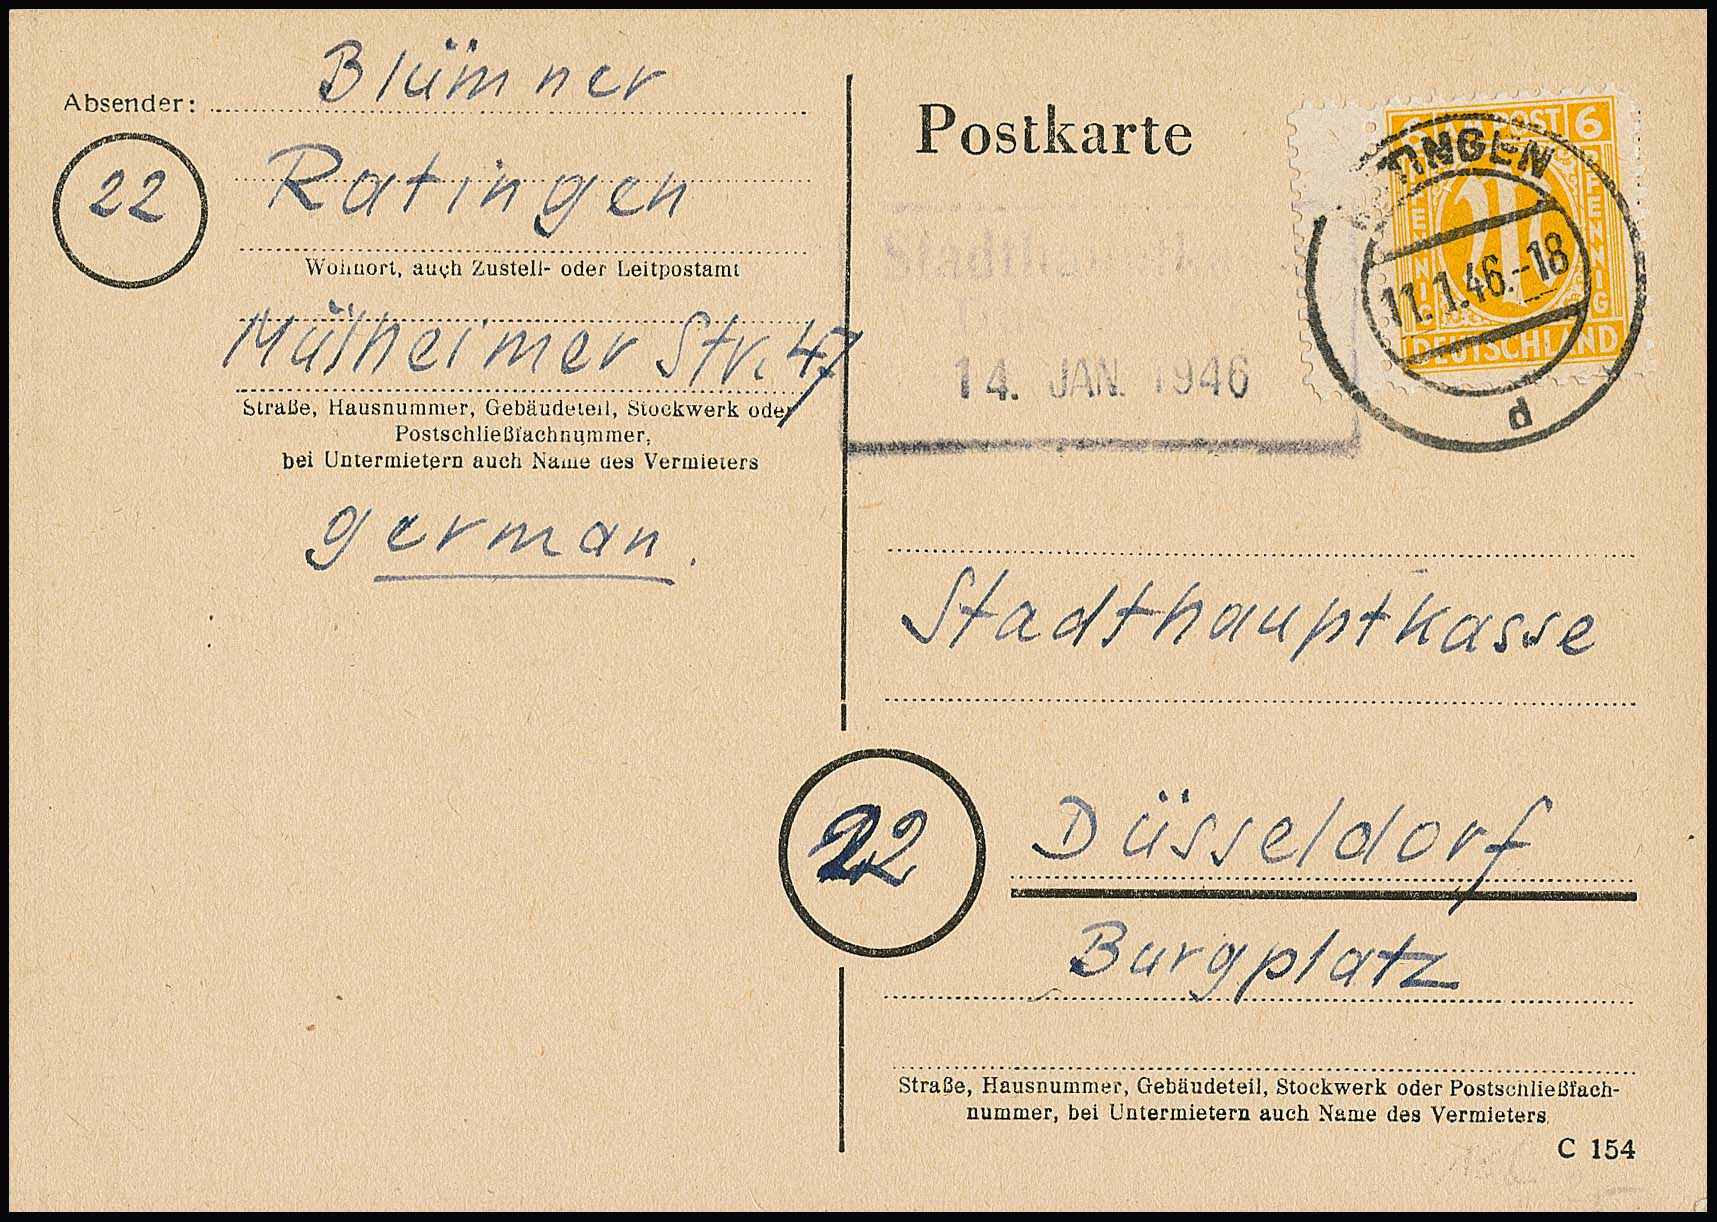 Blümner
Absender:
22
Ratingen
Wohnort, auch Zustell- oder Leitpostamt
Mülheimer Str. 47
Straße, Hausnummer, Gebäudeteil, Stockwerk oder
Postschließfachnummer,
bei Untermietern auch Name des Vermieters
german.
Postkarte
6 AM POST 6
PFENNIG
PFENNIG
DEUTSCHLAND
INGEN
11.1.46.-18
d
14. JAN. 1946
Stadthauptkasse
22
Düsseldorf
Burgplatz
Straße, Hausnummer, Gebäudeteil, Stockwerk oder Postschließfach-
nummer, bei Untermietern auch Name des Vermieters
C 154